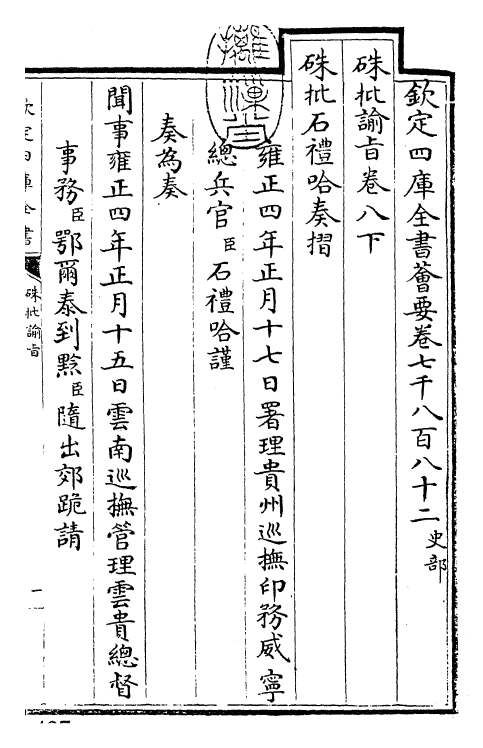 欽定四庫全書薈要卷七千八百八十二 史部
硃批諭旨卷八下
硃批石禮哈奏摺
雍正四年正月十七日署理貴州巡撫印務威寧
總兵官臣石禮哈謹
奏為奏
聞事雍正四年正月十五日雲南巡撫管理雲貴總督
事務臣鄂爾泰到黔臣隨出郊跪請
欽定四庫全書
硃批諭旨
一